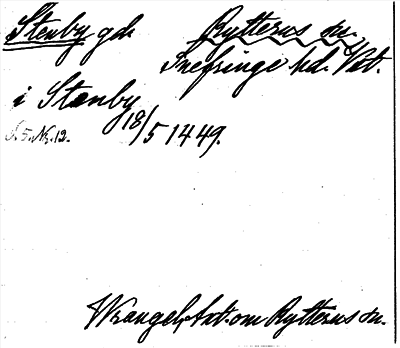 Stenby gd. Rytterns sn.
Snefringe hd. Vst.
i Stænby 18/5 1449.
S. 5. Nr. 12.
Wrangel, Ant. om Rytterns sn.